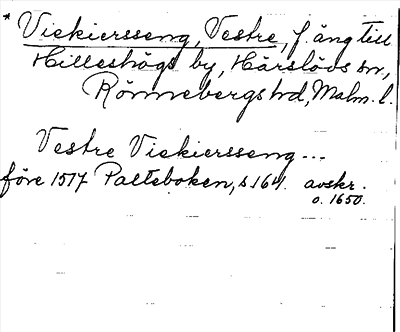 * Vickiersseng, Vestre, f. äng till
Hilleshögs by, Härslövs sn,
Rönnebergs hd, Malm. l.
Vestre Vickiersseng...
före 1517 Palteboken, s 164. avskr.
o. 1650.